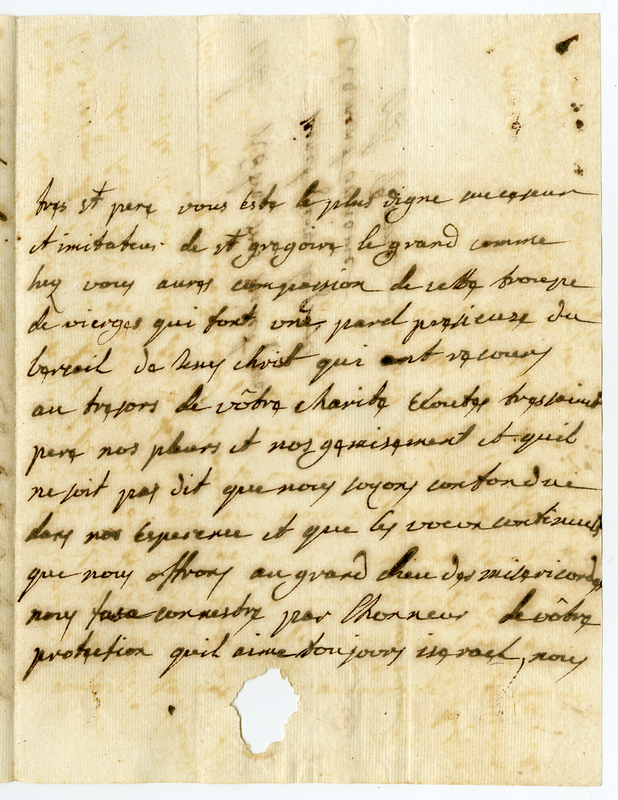 tres st pere vous este le plus digne sucesseur
et imitateur de st gregoire le grand comme
luy vous aures compassion de cette troupe
de vierges qui font une part presieuse du
berceil de Jesus christ qui ont recours
au tresors de vôtre charite Ecoutes tressaint
pere nos pleurs et nos gemisement et quil
ne soit pas dit que nous soyons confondue
dans nos Esperence et que les voeux continuels
que nous offrons au grand dieu des misericordes
nous fase connestre par lhonneur de vôtre
protection quil aime toujours israel, nous